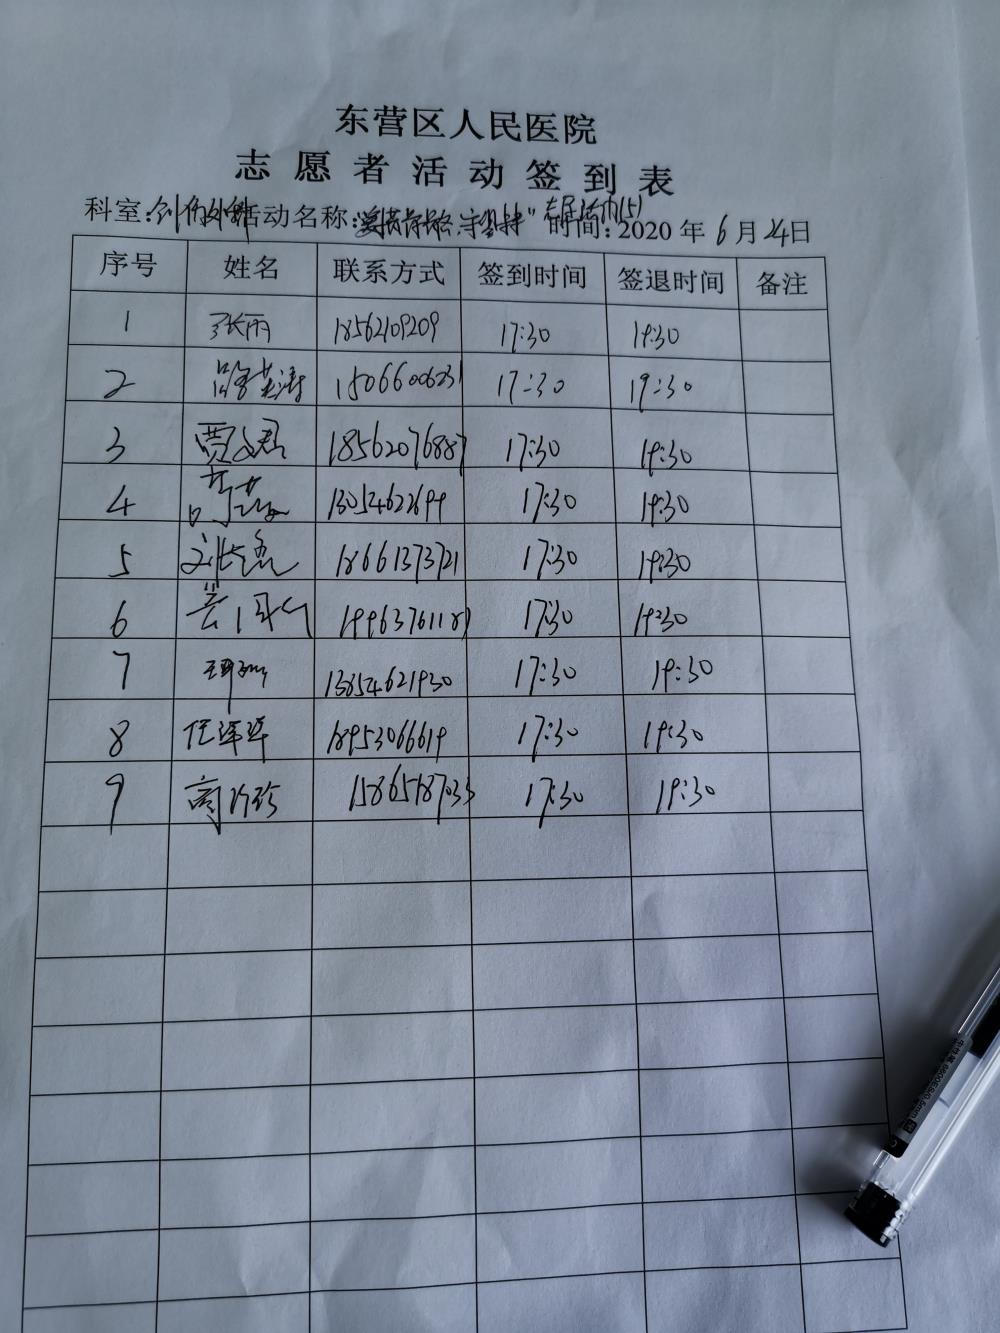 东营区人民医院
志愿者活动签到表
科室:创伤外科 活动名称: 时间:2020年6月24日
序号 姓名 联系方式 签到时间 签退时间 备注
1 张雨 18562109209 17:30 19:30
2 路英涛 15066006231 17:30 19:30
3 贾 君 18562076887 17:30 19:30
4 13054622694 17:30 19:30
5 刘 18661373721 17:30 19:30
6 17:30 19:30
7 13854621930 17:30 19:30
8 任译萍 18953066619 17:30 19:30
9 商珍珍 15865187033 17:30 19:30